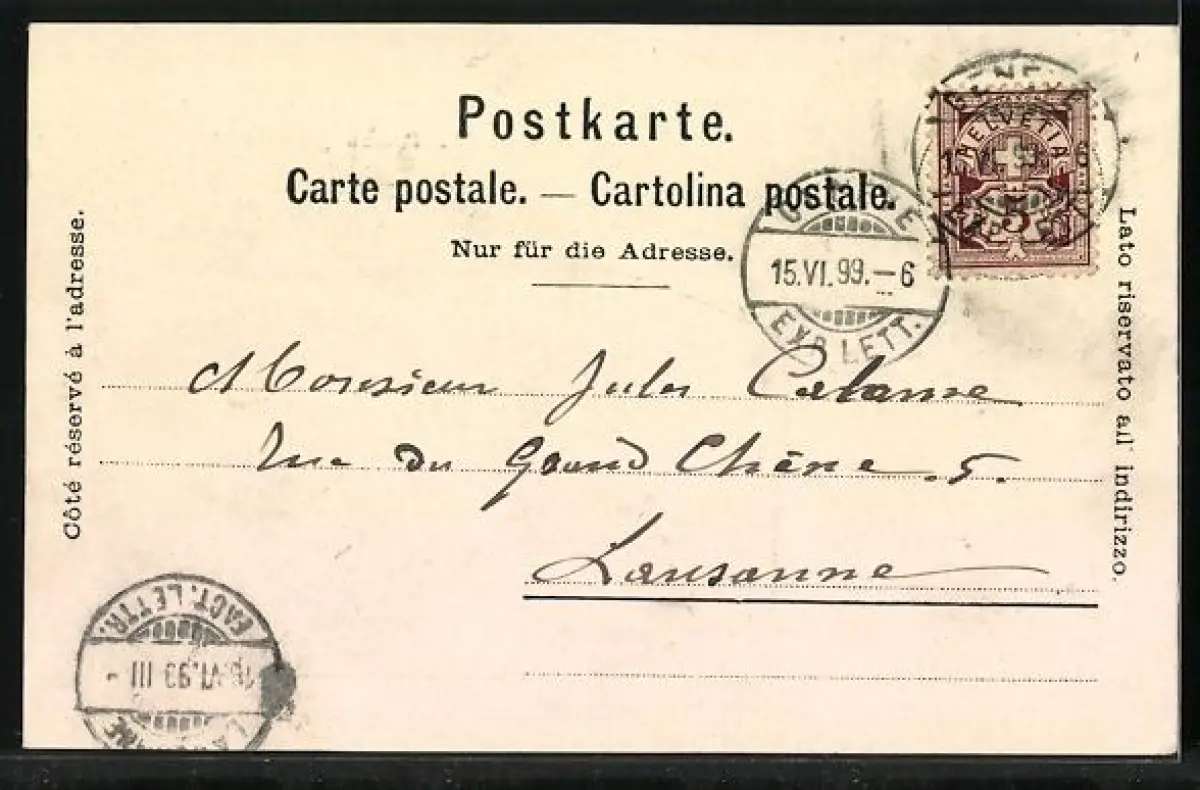 Postkarte.
Carte postale. — Cartolina postale.
Nur für die Adresse.
Côté réservé à l'adresse.
Lato riservato all' indirizzo.
HELVETIA
5
GENÈVE
15.VI.99.–6
EXP. LETT.
Monsieur Jules Calame
Rue du Grand Chêne 5.
Lausanne
FACT. LETTR.
VI.99 III
LAUSANNE